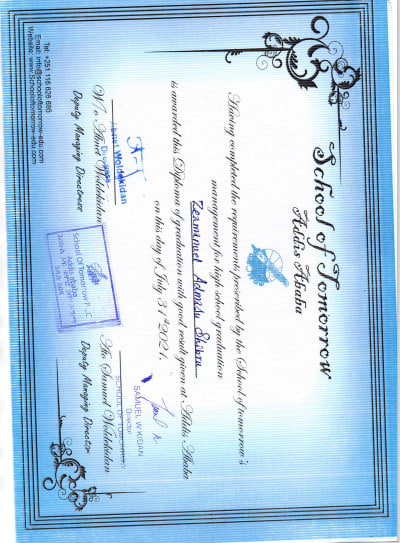 School of Tomorrow
Addis Ababa
Having completed the requirements prescribed by the School of tomorrow's
management for high school graduation
Zeamanuel Admasu Shibru
is awarded this Diploma of graduation with good result given at Addis Ababa
on this day of July 31st 2021.
Abnet Woldekidan
Directress
W/o Abnet Woldekidan
Deputy Managing Directress
School Of Tomorrow P.L.C
Addis ababa
አዲስ አበባ
SAMUEL W KIDAN
Director
SCHOOL OF TOMORROW
Ato Samuel Woldekidan
Deputy Managing Director
Tel: +251 116 626 695
Email: info@schooloftomorrow-edu.com
Website: www.Schooloftomorrow-edu.com